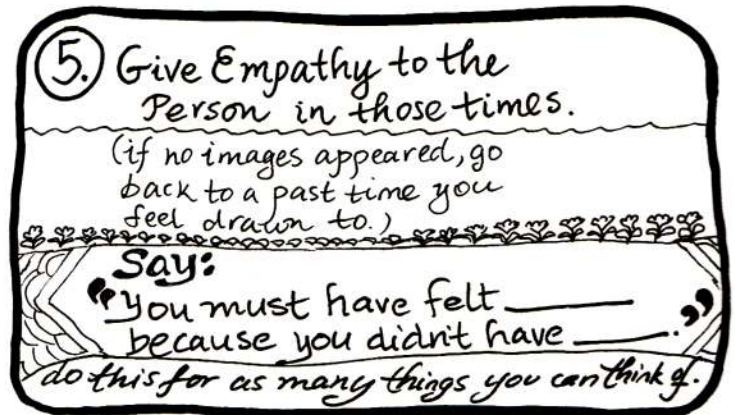 5. Give Empathy to the
Person in those times.
(if no images appeared, go
back to a past time you
feel drawn to.)
Say:
"You must have felt ______
because you didn't have ______."
do this for as many things you can think of.